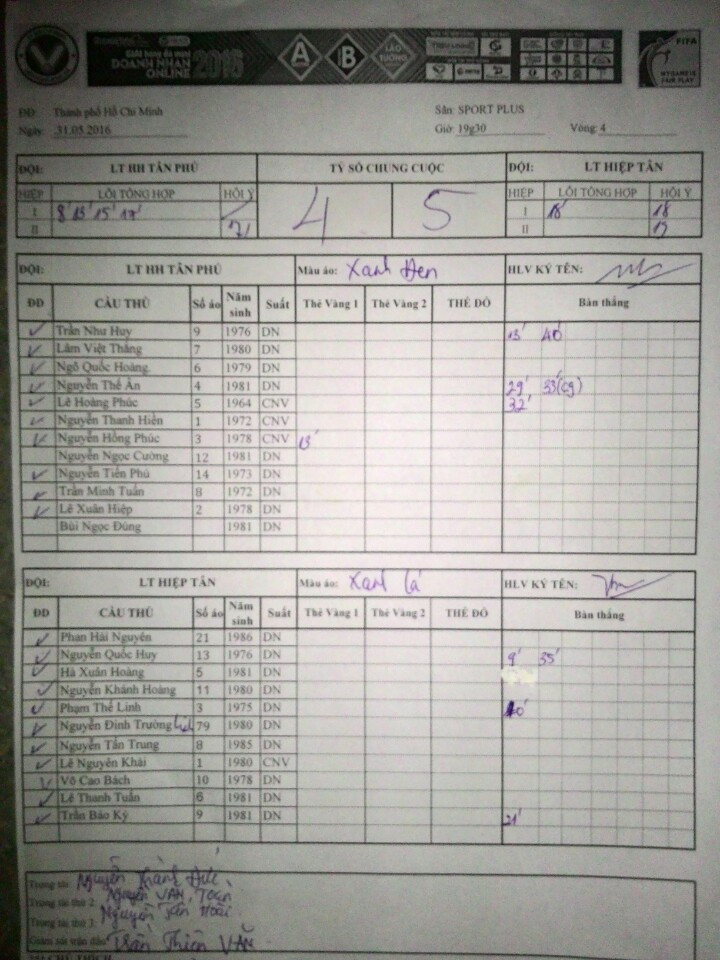 GIẢI bóng đá mini
DOANH NHÂN
ONLINE 2016
A B LÃO TƯỚNG
FIFA
MY GAME IS
FAIR PLAY
ĐĐ: Thành phố Hồ Chí Minh Sân: SPORT PLUS
Ngày: 31.05.2016 Giờ: 19g30 Vòng: 4
ĐỘI: LT HH TÂN PHÚ TỶ SỐ CHUNG CUỘC ĐỘI: LT HIỆP TÂN
HIỆP LỖI TỔNG HỢP HỘI Ý 4 5 HIỆP LỖI TỔNG HỢP HỘI Ý
I 8' 13' 15' 17' I 18' 18
II II 19
ĐỘI: LT HH TÂN PHÚ Màu áo: Xanh Đen HLV KÝ TÊN:
ĐD CẦU THỦ Số áo Năm sinh Suất Thẻ Vàng 1 Thẻ Vàng 2 THẺ ĐỎ Bàn thắng
Trần Như Huy 9 1976 DN 13' 40'
Lâm Việt Thắng 7 1980 DN
Ngô Quốc Hoàng. 6 1979 DN
Nguyễn Thế Ân 4 1981 DN 29' 33'(cg)
Lê Hoàng Phúc 5 1964 CNV 32'
Nguyễn Thanh Hiền 1 1972 CNV
Nguyễn Hồng Phúc 3 1978 CNV 13'
Nguyễn Ngọc Cường 12 1981 DN
Nguyễn Tiến Phú 14 1973 DN
Trần Minh Tuấn 8 1972 DN
Lê Xuân Hiệp 2 1978 DN
Bùi Ngọc Đúng 1981 DN
ĐỘI: LT HIỆP TÂN Màu áo: Xanh lá HLV KÝ TÊN:
ĐD CẦU THỦ Số áo Năm sinh Suất Thẻ Vàng 1 Thẻ Vàng 2 THẺ ĐỎ Bàn thắng
Phan Hải Nguyên 21 1986 DN
Nguyễn Quốc Huy 13 1976 DN 9' 35'
Hà Xuân Hoàng 5 1981 DN
Nguyễn Khánh Hoàng 11 1980 DN
Phạm Thế Linh 3 1975 DN 40'
Nguyễn Đình Trường 79 1980 DN
Nguyễn Tấn Trung 8 1985 DN
Lê Nguyên Khải 1 1980 CNV
Võ Cao Bách 10 1978 DN
Lê Thanh Tuấn 6 1981 DN
Trần Bảo Kỳ 9 1981 DN 21'
Trọng tài: Nguyễn Thành Đức
Trọng tài thứ 2: Nguyễn VĂN Toàn
Trọng tài thứ 3: Nguyễn Tấn Hoài
Giám sát trận đấu: Trần Thiện VĂN